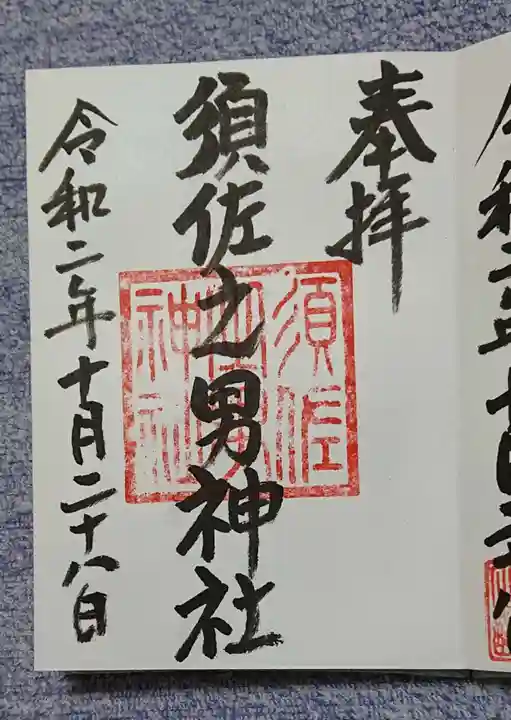 奉拝
須佐之男神社
須佐
之男
神社
令和二年十月二十八日